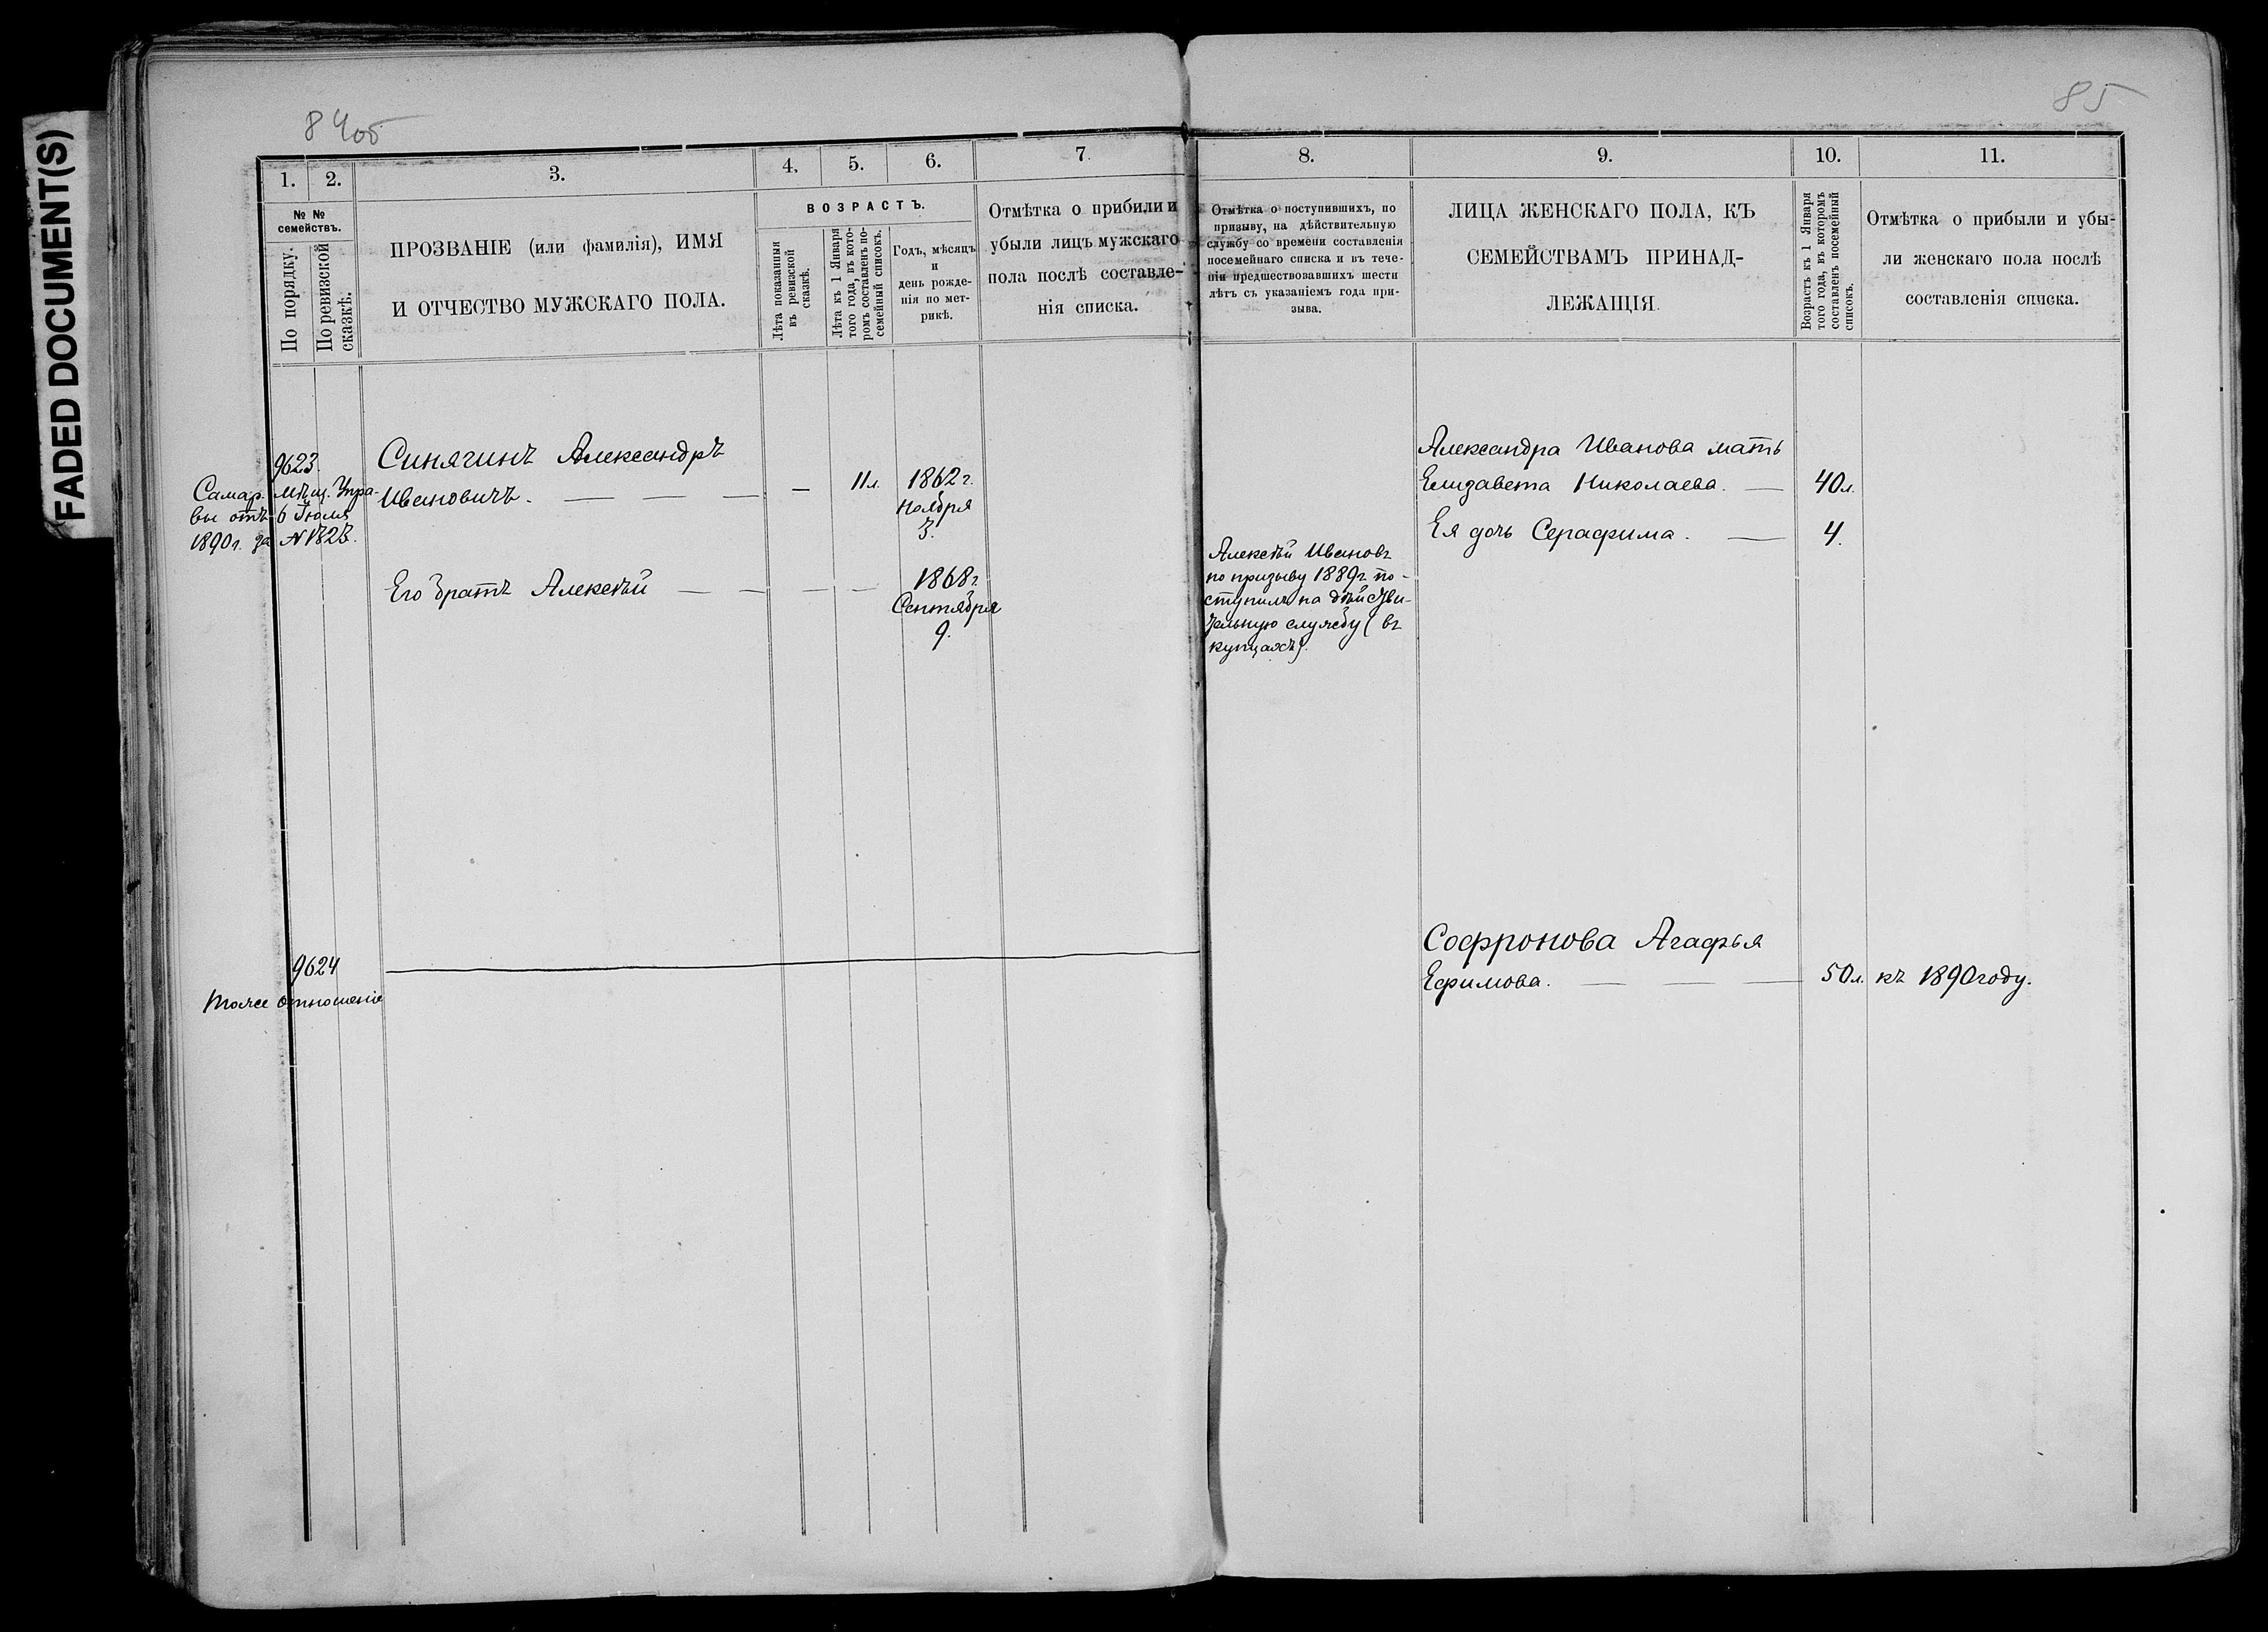 FADED DOCUMENT(S)
84об
85
1.
2.
3.
4.
5.
6.
7.
8.
9.
10.
11.
№ №
семействъ.
По порядку.
По ревизской
сказкѣ.
ПРОЗВАНІЕ (или фамилія), ИМЯ
И ОТЧЕСТВО МУЖСКАГО ПОЛА.
ВОЗРАСТЪ.
Лѣта показанныя
въ ревизской
сказкѣ.
Лѣта къ 1 Января
того года, въ кото-
ромъ составленъ по-
семейный списокъ.
Годъ, мѣсяцъ
и
день рожде-
нія по мет-
рикѣ.
Отмѣтка о прибыли и
убыли лицъ мужскаго
пола послѣ составле-
нія списка.
Отмѣтка о поступившихъ, по
призыву, на дѣйствительную
службу со времени составленія
посемейнаго списка и въ тече-
ніи предшествовавшихъ шести
лѣтъ съ указаніемъ года при-
зыва.
ЛИЦА ЖЕНСКАГО ПОЛА, КЪ
СЕМЕЙСТВАМЪ ПРИНАД-
ЛЕЖАЩІЯ.
Возрастъ къ 1 Января
того года, въ которомъ
составленъ посемейный
списокъ.
Отмѣтка о прибыли и убы-
ли женскаго пола послѣ
составленія списка.
9623.
Самар. Мѣщ. Упра-
вы отъ 6 Іюля
1890г. за №1823.
Синягинъ Александръ
Ивановичъ. — — — — 11л. 1862г.
Ноября
3.
Его братъ Алексѣй — — — — 1868г.
Сентября
9.
Алексѣй Ивановъ
по призыву 1889г. по-
ступилъ на дѣйстви-
тельную службу (въ
купцахъ).
Александра Иванова мать
Елизавета Николаева. — 40л.
Ея дочь Серафима. — 4.
9624
Тоже отношеніе
Софронова Агафья
Ефимова. — — — 50л. къ 1890 году.